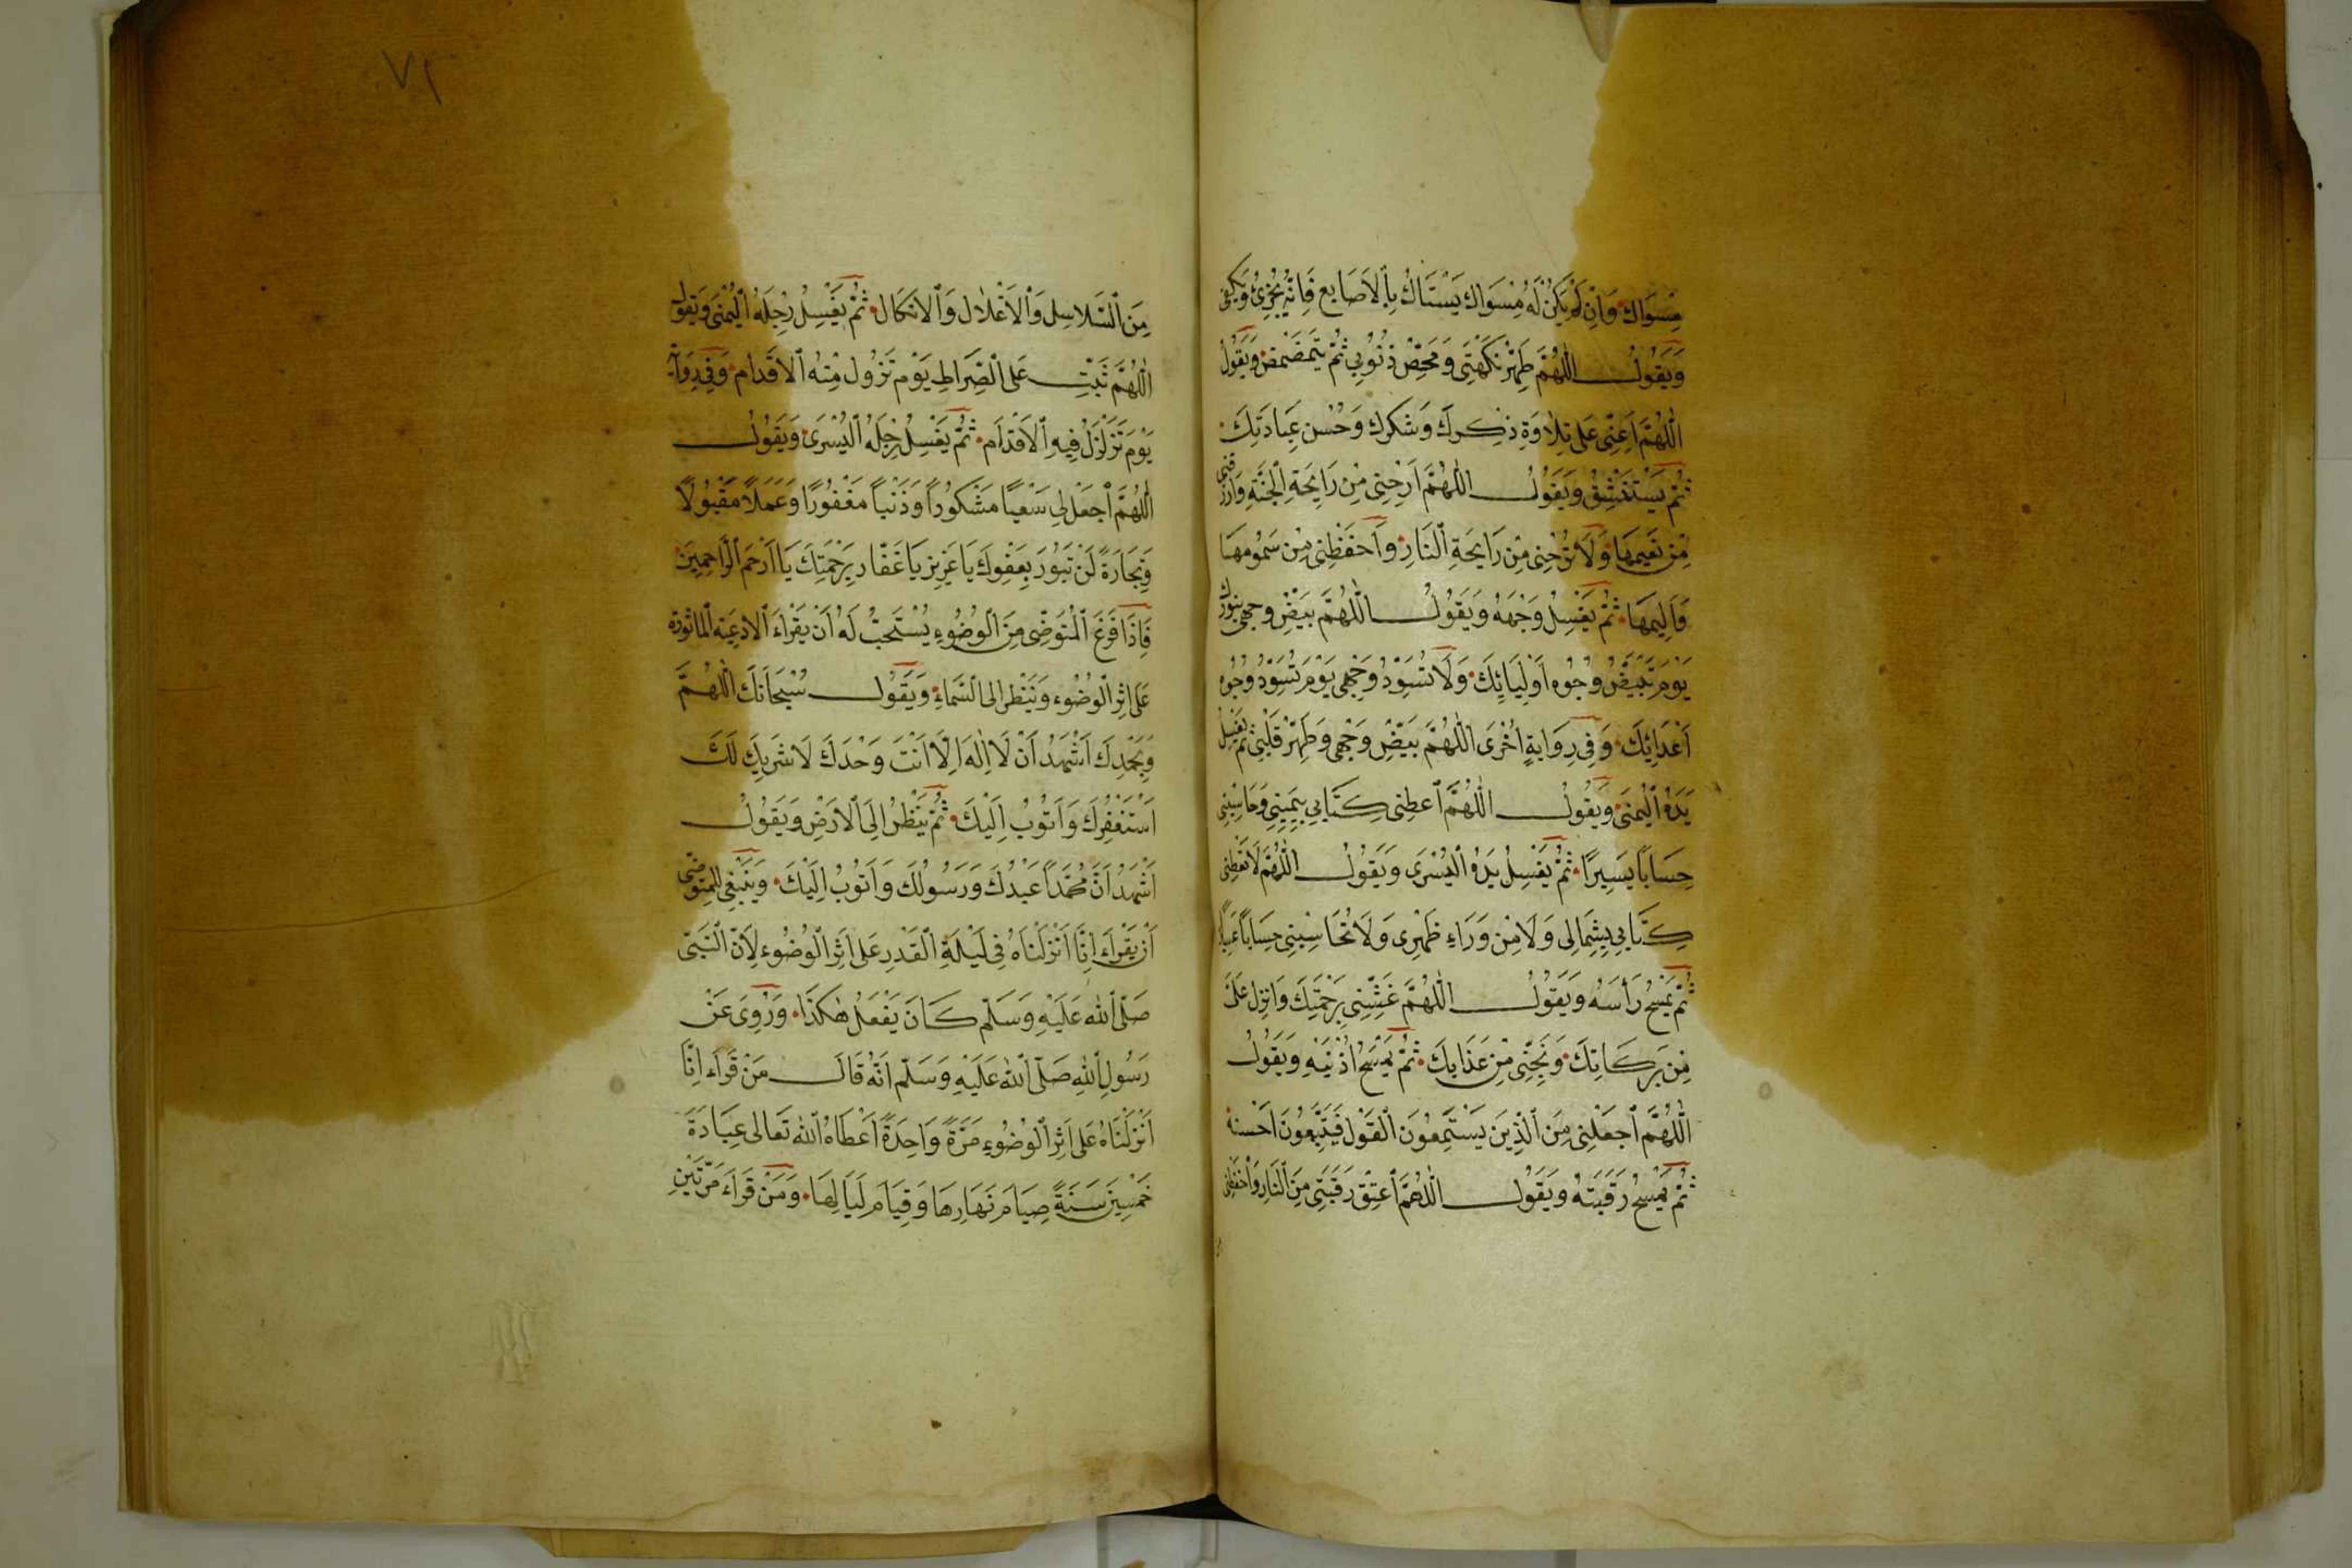 مِسْوَاك وَاِنْ لَمْ يَكُنْ لَهُ مِسْوَاك يَسْتَاكُ بِالْاَصَابِعِ فَاِنَّهُ يُجْزِئُ وَيَكْفِى
وَيَقُولُ اَللّٰهُمَّ طَهِّرْ نَكْهَتِى وَمَحِّصْ ذُنُوبِى ثُمَّ يَتَمَضْمَضُ وَيَقُولُ
اَللّٰهُمَّ اَعِنِّى عَلَى تِلَاوَةِ ذِكْرِكَ وَشُكْرِكَ وَحُسْنِ عِبَادَتِكَ
ثُمَّ يَسْتَنْشِقُ وَيَقُولُ اَللّٰهُمَّ اَرِحْنِى مِنْ رَايِحَةِ الْجَنَّةِ وَارْزُقْنِى
مِنْ نَعِيمِهَا وَلَا تُرِحْنِى مِنْ رَايِحَةِ النَّارِ وَاحْفَظْنِى مِنْ سَمُومِهَا
وَاَلِيمِهَا ثُمَّ يَغْسِلُ وَجْهَهُ وَيَقُولُ اَللّٰهُمَّ بَيِّضْ وَجْهِى بِنُورِكَ
يَوْمَ تَبْيَضُّ وُجُوه اَوْلِيَائِكَ وَلَا تُسَوِّدْ وَجْهِى يَوْمَ تُسَوِّدُ وُجُوه
اَعْدَائِكَ وَفِى رِوَايَةٍ اُخْرَى اَللّٰهُمَّ بَيِّضْ وَجْهِى وَطَهِّرْ قَلْبِى ثُمَّ يَغْسِلُ
يَدَهُ الْيُمْنَى وَيَقُولُ اَللّٰهُمَّ اَعْطِنِى كِتَابِى بِيَمِينِى وَحَاسِبْنِى
حِسَابًا يَسِيرًا ثُمَّ يَغْسِلُ يَدَهُ الْيُسْرَى وَيَقُولُ اَللّٰهُمَّ لَا تُعْطِنِى
كِتَابِى بِشِمَالِى وَلَا مِنْ وَرَاءِ ظَهْرِى وَلَا تُحَاسِبْنِى حِسَابًا
ثُمَّ يَمْسَحُ رَأْسَهُ وَيَقُولُ اَللّٰهُمَّ غَشِّنِى بِرَحْمَتِكَ وَانْزِلْ عَلَىَّ
مِنْ بَرَكَاتِكَ وَنَجِّنِى مِنْ عَذَابِكَ ثُمَّ يَمْسَحُ اُذُنَيْهِ وَيَقُولُ
اَللّٰهُمَّ اجْعَلْنِى مِنَ الَّذِينَ يَسْتَمِعُونَ الْقَوْلَ فَيَتَّبِعُونَ اَحْسَنَهُ
ثُمَّ يَمْسَحُ رَقَبَتَهُ وَيَقُولُ اَللّٰهُمَّ اَعْتِقْ رَقَبَتِى مِنَ النَّارِ وَاحْفَظْنِى
٧١
مِنَ السَّلَاسِلِ وَالْاَغْلَالِ وَالْاَنْكَالِ ثُمَّ يَغْسِلُ رِجْلَهُ الْيُمْنَى وَيَقُولُ
اَللّٰهُمَّ ثَبِّتْ عَلَى الصِّرَاطِ يَوْمَ تَزُولُ مِنْهُ الْاَقْدَام وَفِى رِوَايَةٍ
يَوْمَ تَزَلْزَلُ فِيهِ الْاَقْدَام ثُمَّ يَغْسِلُ رِجْلَهُ الْيُسْرَى وَيَقُولُ
اَللّٰهُمَّ اجْعَلْ لِى سَعْيًا مَشْكُورًا وَذَنْبًا مَغْفُورًا وَعَمَلًا مَقْبُولًا
وَتِجَارَةً لَنْ تَبُورَ بِعَفْوِكَ يَا عَزِيز يَا غَفَّار بِرَحْمَتِكَ يَا اَرْحَمَ الرَّاحِمِينَ
فَاِذَا فَرَغَ الْمُتَوَضِّى مِنَ الْوُضُوءِ يُسْتَحَبُّ لَهُ اَنْ يَقْرَاَءَ الْاَدْعِيَةَ الْمَاثُورَة
عَلَى اثرِ الْوُضُوء وَيَنْظر اِلَى السَّمَاءِ وَيَقُولُ سُبْحَانَكَ اللّٰهُمَّ
وَبِحَمْدِكَ اَشْهَدُ اَنْ لَا اِلٰهَ اِلَّا اَنْتَ وَحْدَكَ لَا شَرِيكَ لَكَ
اَسْتَغْفِرُكَ وَاَتُوبُ اِلَيْكَ ثُمَّ يَنْظُرُ اِلَى الْاَرْضِ وَيَقُولُ
اَشْهَدُ اَنَّ مُحَمَّدًا عَبْدُكَ وَرَسُولُكَ وَاَتُوبُ اِلَيْكَ وَيَنْبَغِى لِلْمُتَوَضِّى
اَنْ يَقْرَاَءَ اِنَّا اَنْزَلْنَاهُ فِى لَيْلَةِ الْقَدْرِ عَلَى اَثَرِ الْوُضُوء لِاَنَّ النَّبِىَّ
صَلَّى اللّٰهُ عَلَيْهِ وَسَلَّم كَانَ يَفْعَلُ هٰكَذَا وَرُوِىَ عَنْ
رَسُولِ اللّٰهِ صَلَّى اللّٰهُ عَلَيْهِ وَسَلَّم اَنَّهُ قَالَ مَنْ قَرَاَء اِنَّا
اَنْزَلْنَاهُ عَلَى اَثرِ الْوُضُوءِ مَرَّةً وَاحِدَةً اَعْطَاهُ اللّٰه تَعَالَى عِبَادَةَ
خَمْسِينَ سَنَةً صِيَامَ نَهَارِهَا وَقِيَامَ لَيَالِهَا وَمَنْ قَرَاَءَ مَرَّتَيْنِ